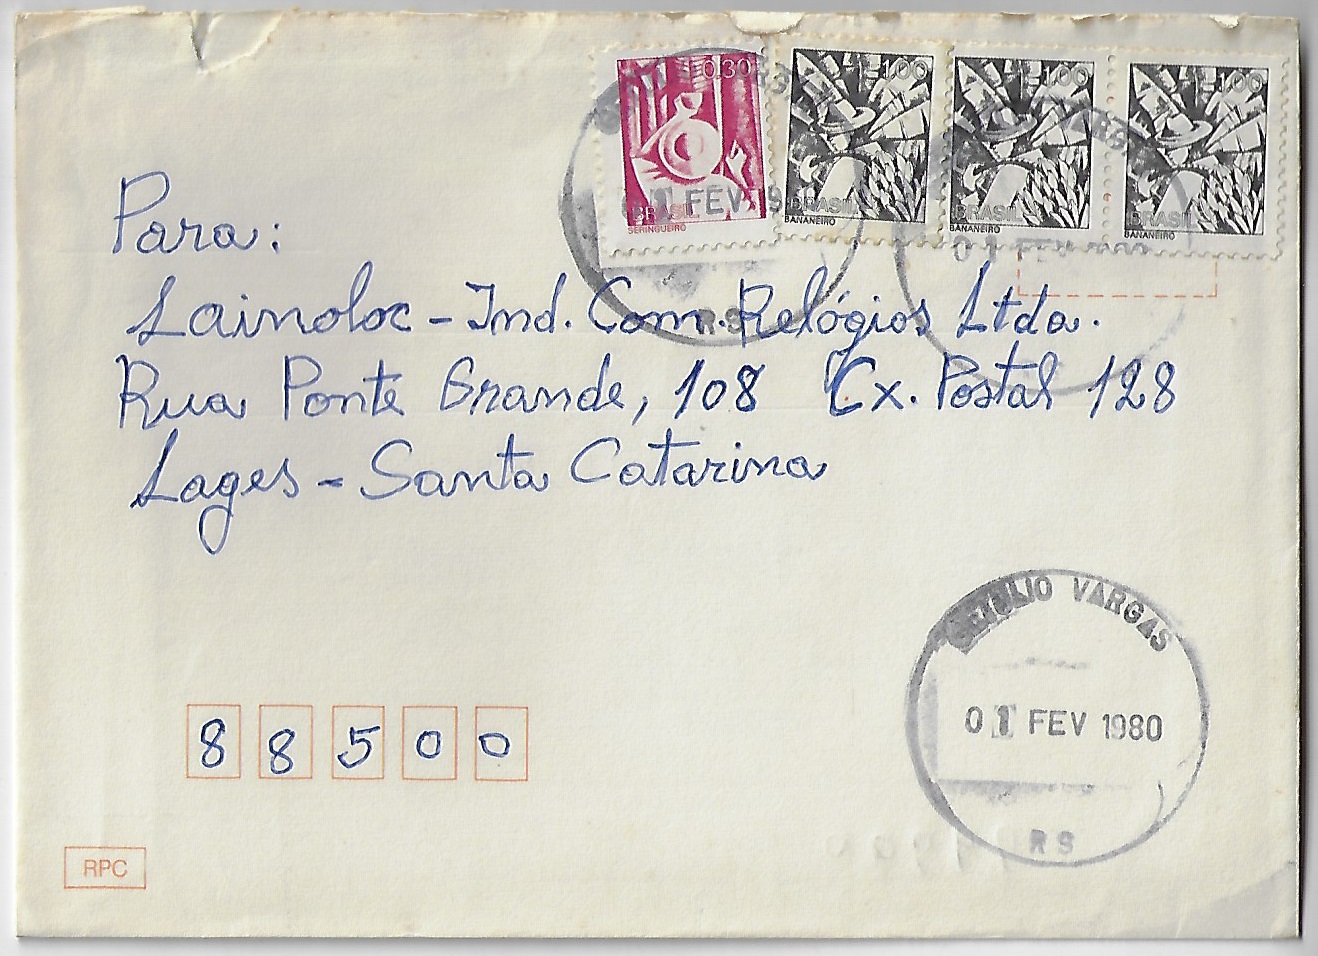 0.30
BRASIL
SERINGUEIRO
1.00
BRASIL
BANANEIRO
1.00
BRASIL
BANANEIRO
1.00
BRASIL
BANANEIRO
01 FEV
RS
01 FEV
Para:
Lainoloc - Ind. Com. Relógios Ltda.
Rua Ponte Grande, 108 Cx. Postal 128
Lages - Santa Catarina
GETULIO VARGAS
01 FEV 1980
RS
88500
RPC